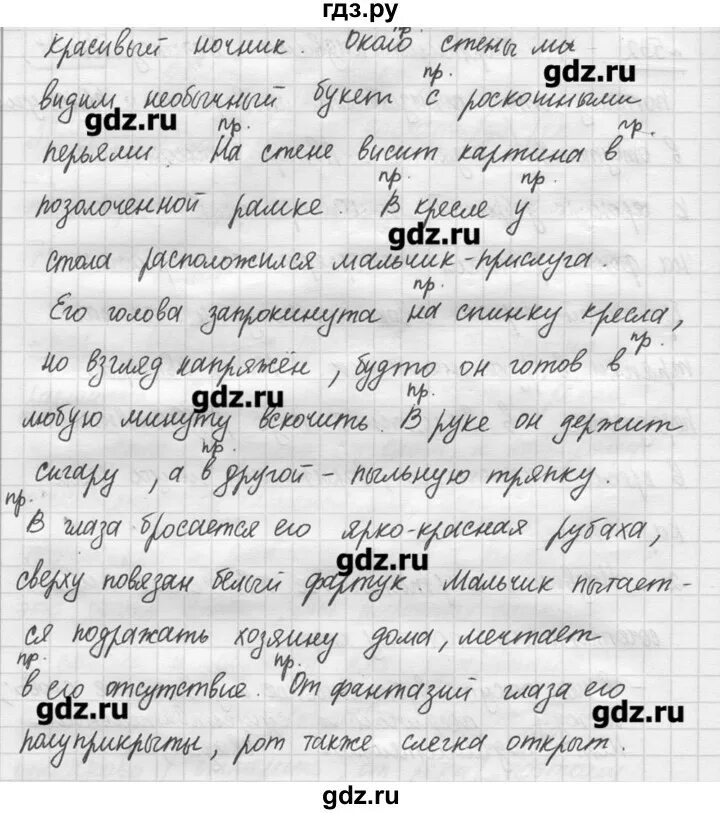 гдз.ру
красивый ночник. Около стены мы
пр.
gdz.ru
видим необычный букет с роскошными
gdz.ru
пр. пр.
перьями. На стене висит картина в
пр. пр.
позолоченной рамке. В кресле у
gdz.ru
стола расположился мальчик-прислуга.
пр.
Его голова запрокинута на спинку кресла,
пр.
но взгляд напряжён, будто он готов в
gdz.ru
пр.
любую минуту вскочить. В руке он держит
пр.
сигару, а в другой - пыльную тряпку.
пр.
В глаза бросается его ярко-красная рубаха,
gdz.ru
сверху повязан белый фартук. Мальчик пытает-
ся подражать хозяину дома, мечтает
пр. пр.
в его отсутствие. От фантазий глаза его
gdz.ru gdz.ru
полуприкрыты, рот также слегка открыт.
gdz.ru